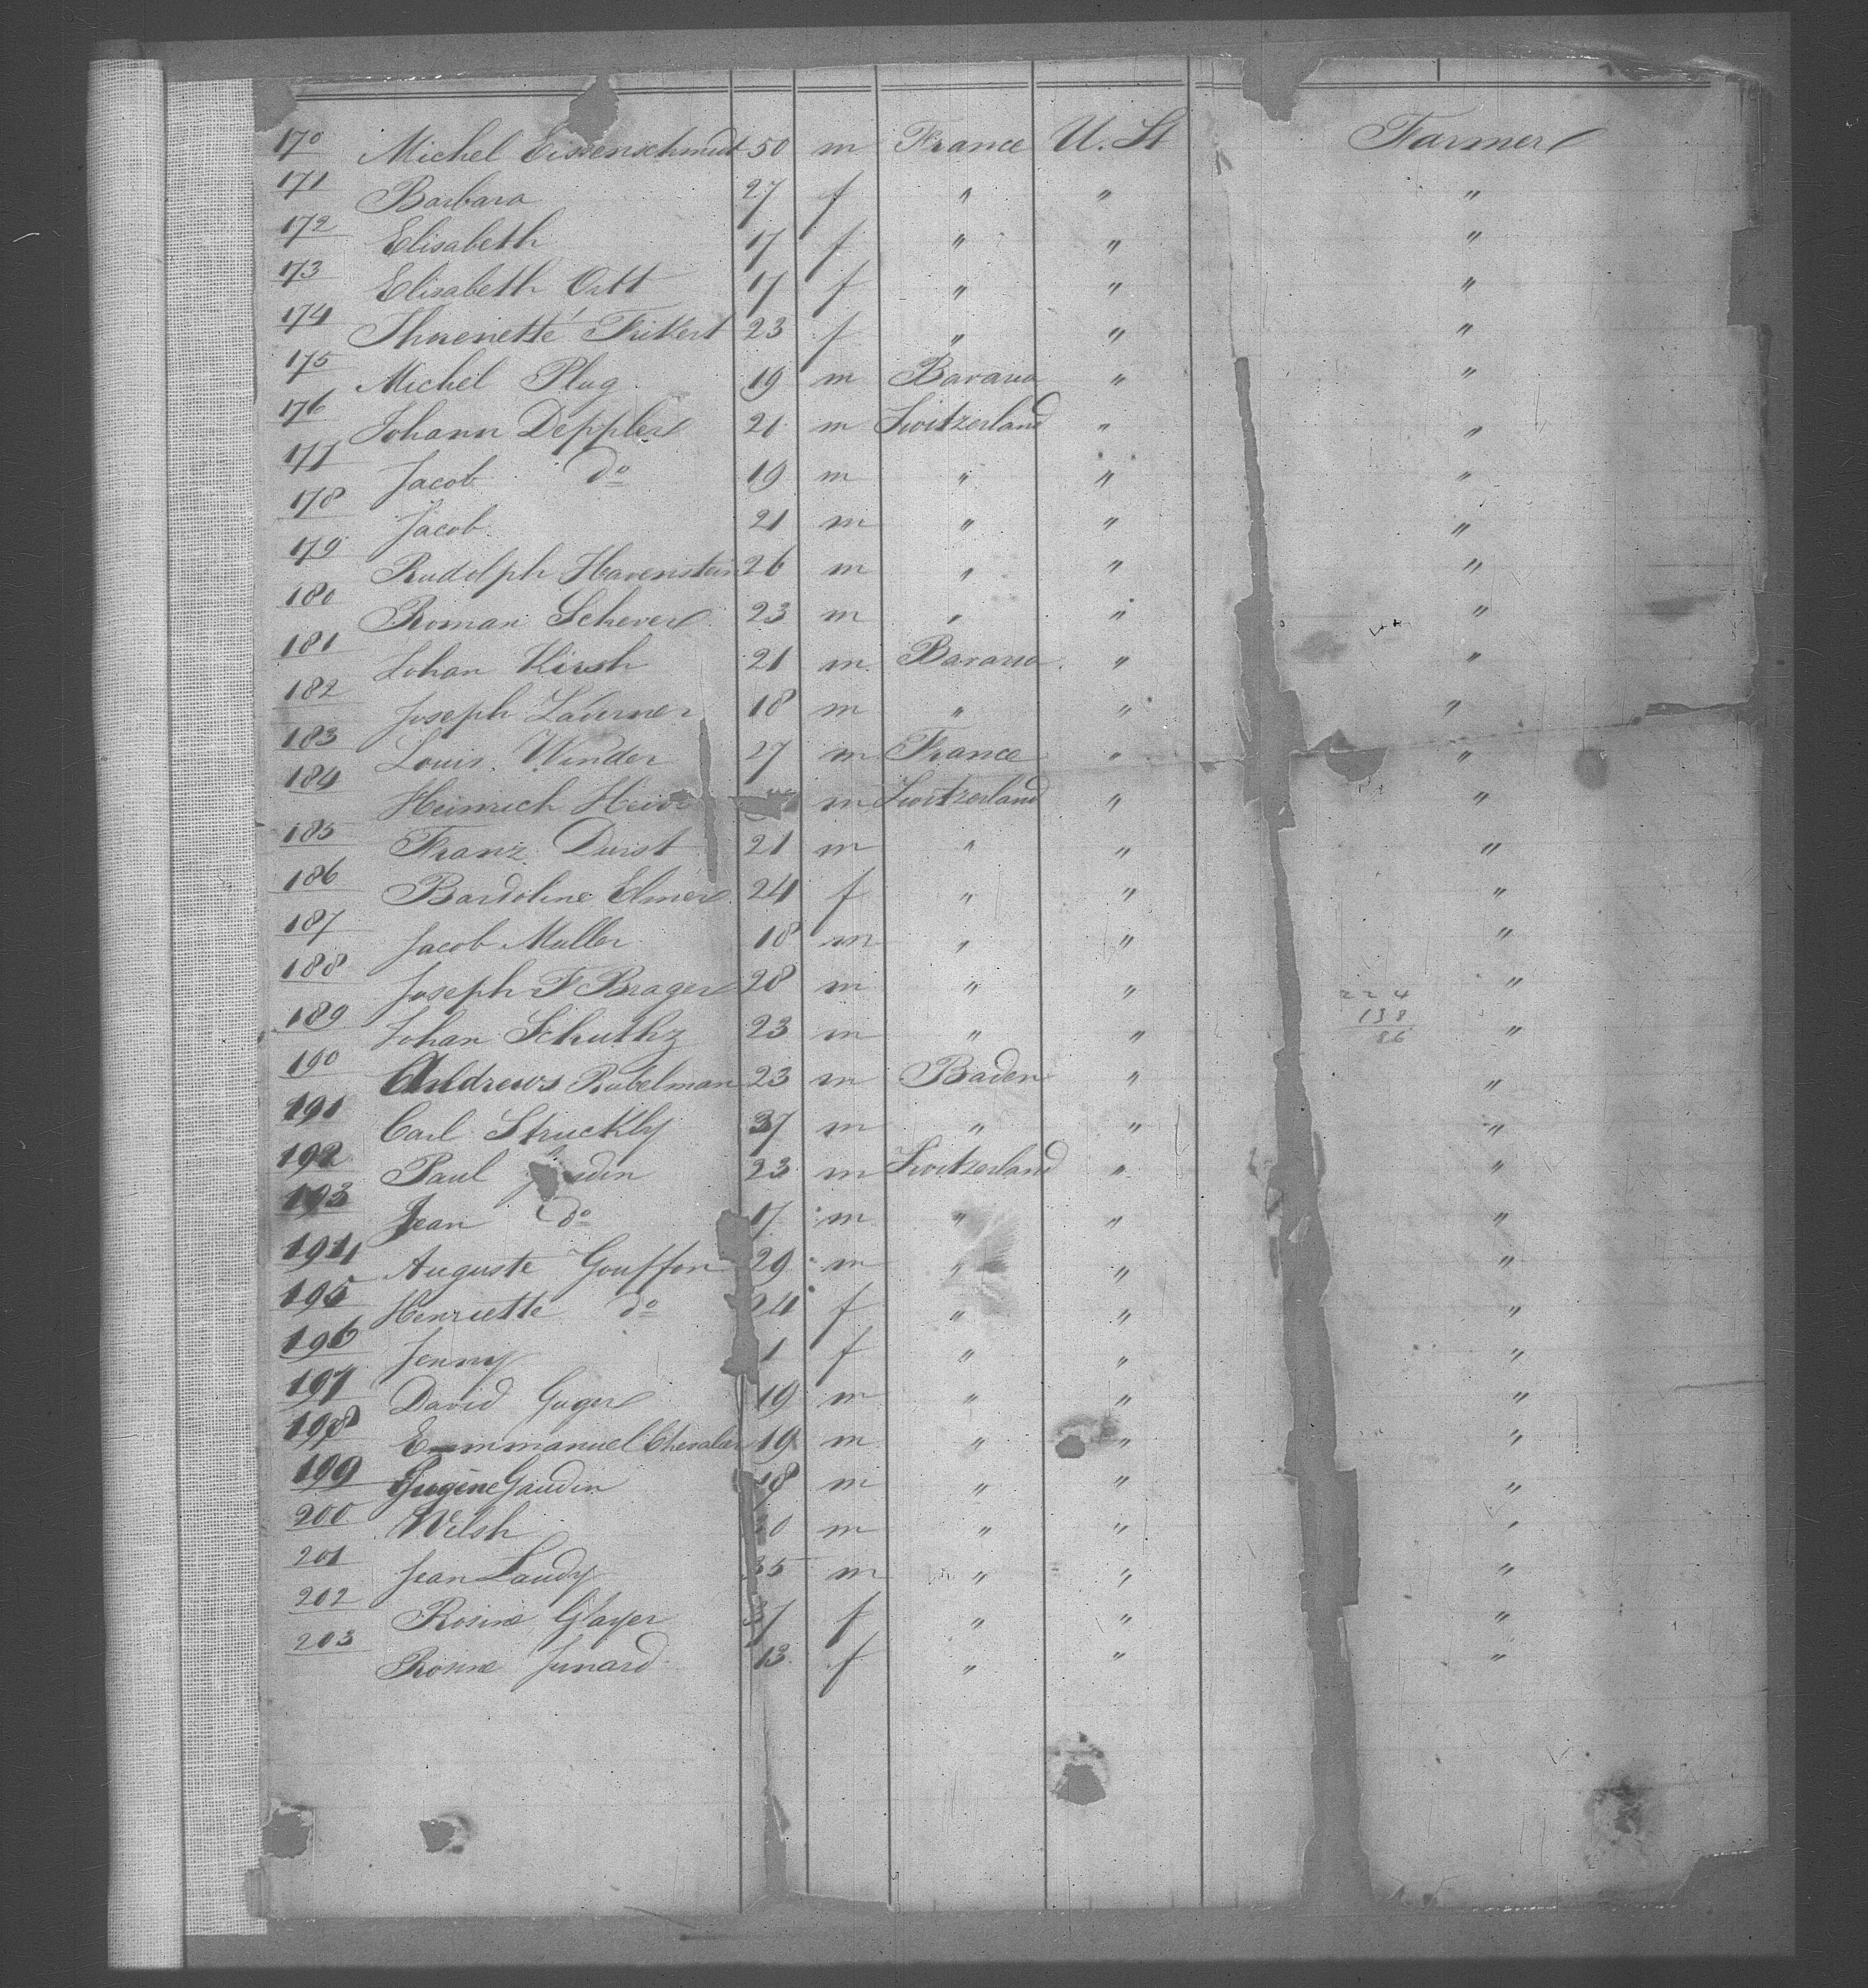 170 Michel Eissenschmidt 50 m France U. St Farmer
171 Barbara 27 f " " "
172 Elisabeth 17 f " " "
173 Elisabeth Ott 17 f " " "
174 23 f " " "
175 Michel Plug 19 m Bavaria " "
176 Johann Deppler 21 m Switzerland " "
177 Jacob do 19 m " " "
178 Jacob 21 m " " "
179 Rudolph Havenstein 26 m " " "
180 Roman Scherer 23 m " " "
181 Johan Kirsh 21 m Bavaria " "
182 Joseph Laurner 18 m " " "
183 Louis Winder 27 m France " "
184 Heinrich m Switzerland " "
185 Franz Durst 21 m " " "
186 Bardoline Elmer 24 f " " "
187 Jacob Muller 18 m " " "
188 Joseph F Brager 28 m " " "
224
189 Johan Schuthz 23 m " " "
138
86
190 Andrews Rubelman 23 m Baden " "
191 Carl Struckly 37 m " " "
192 Paul 23 m Switzerland " "
193 Jean do 17 m " " "
194 Auguste Gouffon 29 m " " "
195 Henriette do 24 f " " "
196 Jenny 1 f " " "
197 David Guger 19 m " " "
198 Emmanuel Chevalier 19 m " " "
199 Eugène Gaudin 18 m " " "
200 Welsh m " " "
201 Jean Landy 35 m " " "
202 Rosine Glayer f " " "
203 Rosine Junard 13 f " " "